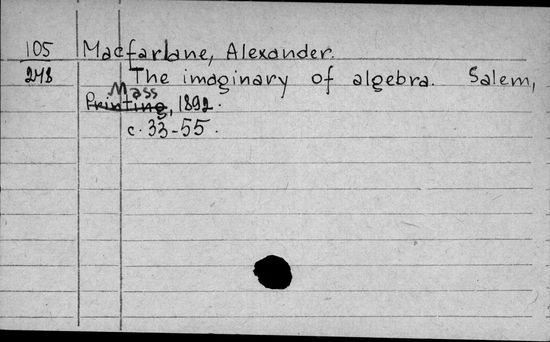 105 Macfarlane, Alexander.
248 The imaginary of algebra. Salem,
Mass
Printing, 1892.
c. 33-55.